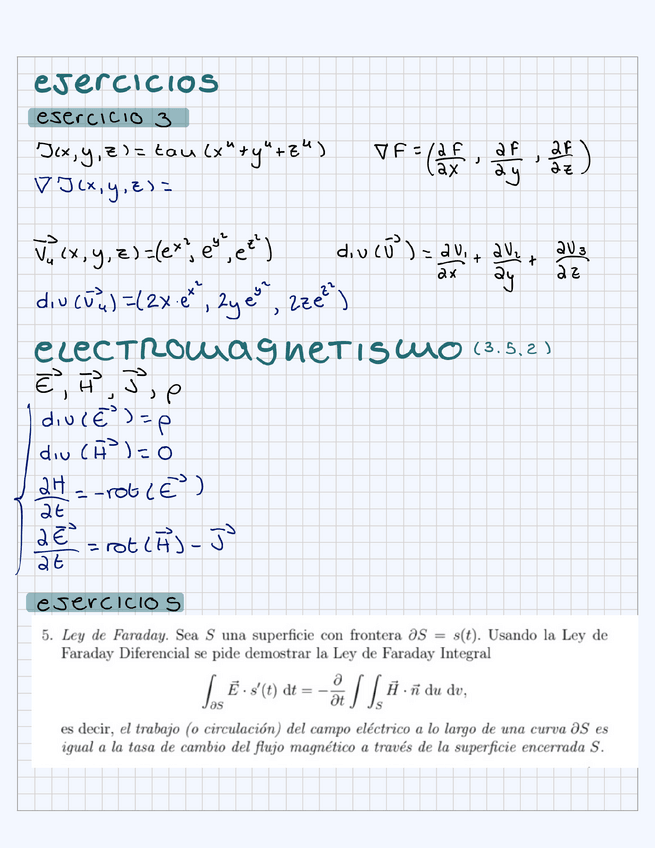 ejercicios
ejercicio 3
J(x,y,z) = tan (x⁴+y⁴+z⁴)   ∇F = (∂F/∂x , ∂F/∂y , ∂F/∂z)
∇J(x,y,z) =
V⃗₄(x,y,z)=(e^x², e^y², e^z²)   div(U⃗) = ∂U₁/∂x + ∂U₂/∂y + ∂U₃/∂z
div(V⃗₄)=(2x·e^x², 2ye^y², 2ze^z²)
electromagnetismo (3.5.2)
E⃗, H⃗, J⃗, ρ
div(E⃗) = ρ
div(H⃗) = 0
∂H/∂t = -rot(E⃗)
∂E⃗/∂t = rot(H⃗) - J⃗
ejercicio 5
5. Ley de Faraday. Sea S una superficie con frontera ∂S = s(t). Usando la Ley de
Faraday Diferencial se pide demostrar la Ley de Faraday Integral
∫_∂S E⃗ · s′(t) dt = −∂/∂t ∫∫_S H⃗ · n⃗ du dv,
es decir, el trabajo (o circulación) del campo eléctrico a lo largo de una curva ∂S es
igual a la tasa de cambio del flujo magnético a través de la superficie encerrada S.